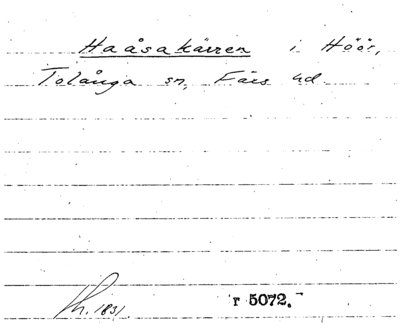 Haåsakärren i Höör,
Tolånga sn, Färs hd.
Lh. 1831. r 5072.